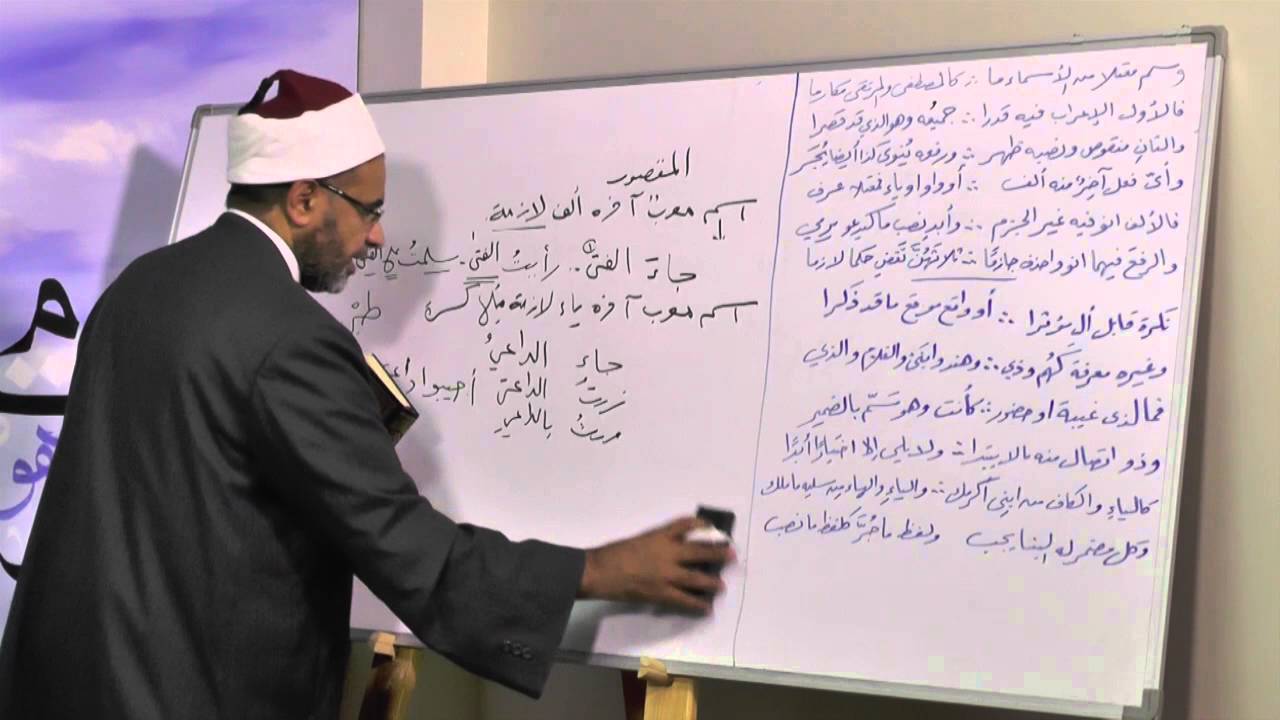 وسم معتلا من الأسماء ما ∴ كالمصطفى والمرتقى مكارما
فالأول الإعراب فيه قدرا ∴ جميعُه وهو الذي قد قصرا
والثانِ منقوص ونصبه ظهر ∴ ورفعه يُنوى كذا أيضا يُجَر
وأىّ فعل آخِرٌ منه ألف ∴ أو واو او ياء فمعتلا عرف
فالألف انو فيه غير الجزم ∴ وأبد نصب ما كيدعو يرمي
والرفع فيهما انو واحذف جازمًا ∴ ثلاثَهُنّ تَقضِ حكما لازما
نكرة قابل ألِ مؤثرا ∴ أو واقع موقع ما قد ذكرا
وغيره معرفة كهُم وذي ∴ وهند وابنى والغلام والذي
فما لذى غيبة او حضور ∴ كأنت وهو سَمّ بالضمير
وذو اتصال منه ما لا يبتدا ∴ ولا يلى إلا اختيارًا أبدًا
كالياءِ والكاف من ابنِى أكرمك ∴ والياءِ والها من سليه ما ملك
وكل مضمر له البنا يجب ولفظ ما جُرّ كلفظ ما نصب
المقصور
اسم معرب آخره ألف لازمة
جاءَ الفتى. رأيتُ الفتى. سلمتُ
اسم معرب آخره ياء لازمة كسرة
جاء الداعي
زرتُ الداعيَ أجيبوا داعي
مررتُ بالداعي